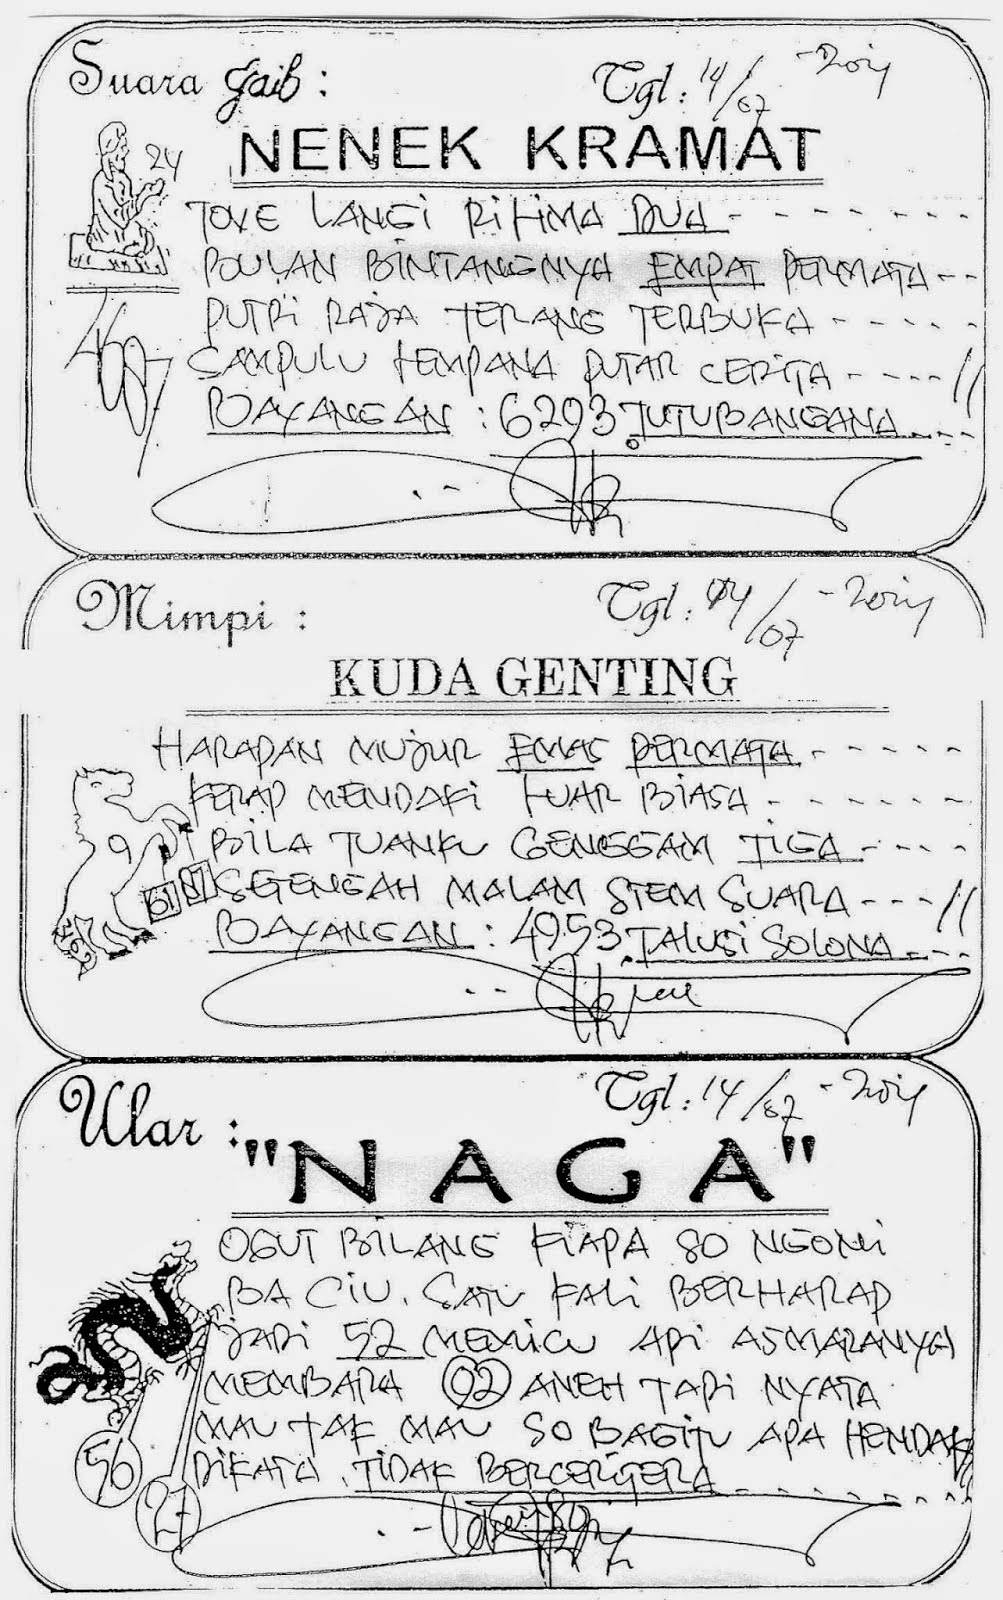 Suara gaib :
Tgl : 14/07 -2014
NENEK KRAMAT
24
TOVE LANGI RILIMA DUA - - - - - - -
BOULAN BINTANGNYA EMPAT PERMATA - - -
PUTRI RAJA TERANG TERBUKA - - - - -
SAMPULU LEMPANA PUTAR CERITA - - - - //
BAYANGAN : 6293. TUTUBANGANA - - -
Mimpi :
Tgl : 14/07 -2014
KUDA GENTING
HARAPAN MUJUR EMAS PERMATA - - - - - -
KERAP MENDAKI LUAR BIASA - - - - - - -
9
BILA TUANKU GENGGAM TIGA - - - - -
61
SETENGAH MALAM STEM SUARA - - - //
BAYANGAN : 4953. TALUSI SOLONA - - -
Ular :
Tgl : 14/07 -2014
"NAGA"
OGUT BILANG KIAPA SO NGONI
BA CIU. SATU KALI BERHARAP
JADI 52 MEMICU API ASMARANYA
MEMBARA 02 ANEH TAPI NYATA
MAU TAK MAU SO BAGITU APA HENDAK
56
DIKATA. TIDAK BERCERIGERA - - - - - -
27